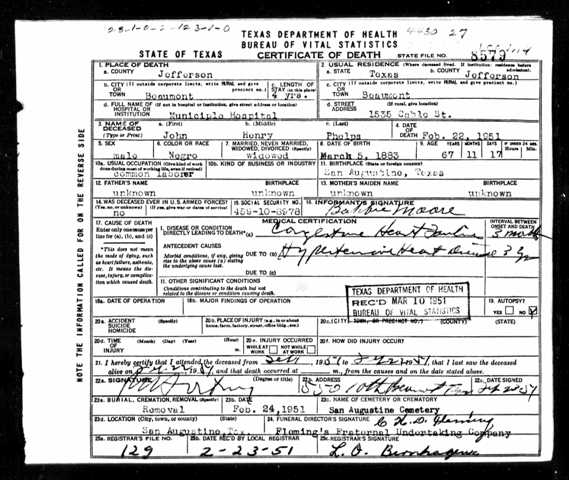 TEXAS DEPARTMENT OF HEALTH
4-30 27
BUREAU OF VITAL STATISTICS
STATE OF TEXAS
CERTIFICATE OF DEATH
STATE FILE NO.
8579
1. PLACE OF DEATH
a. COUNTY
Jefferson
2. USUAL RESIDENCE (Where deceased lived. If institution: residence before admission)
a. STATE Texas b. COUNTY Jefferson
b. CITY (If outside corporate limits, write RURAL and give precinct no.)
OR TOWN Beaumont
c. LENGTH OF STAY (in this place)
4 yrs.
c. CITY (If outside corporate limits, write RURAL and give precinct no.)
OR TOWN Beaumont
d. FULL NAME OF (If not in hospital or institution, give street address or location)
HOSPITAL OR INSTITUTION Municiple Hospital
d. STREET ADDRESS (If rural, give location)
1535 Cable St.
3. NAME OF DECEASED (Type or Print)
a. (First) b. (Middle) c. (Last)
John Henry Phelps
4. DATE OF DEATH
Feb. 22, 1951
5. SEX
male
6. COLOR OR RACE
Negro
7. MARRIED, NEVER MARRIED, WIDOWED, DIVORCED (Specify)
Widowed
8. DATE OF BIRTH
March 5, 1883
9. AGE YEARS MONTHS DAYS
67 11 17
10a. USUAL OCCUPATION (Give kind of work done during most of working life, even if retired)
common laborer
10b. KIND OF BUSINESS OR INDUSTRY
11. BIRTHPLACE (State or foreign country)
San Augustine, Texas
12. FATHER'S NAME BIRTHPLACE
unknown unknown
13. MOTHER'S MAIDEN NAME BIRTHPLACE
unknown unknown
14. WAS DECEASED EVER IN U.S. ARMED FORCES?
(Yes, no, or unknown) (If yes, give war or dates of service)
no
15. SOCIAL SECURITY NO.
16. INFORMANT'S SIGNATURE
Moore
17. CAUSE OF DEATH
Enter only one cause per line for (a), (b), and (c)
MEDICAL CERTIFICATION
INTERVAL BETWEEN ONSET AND DEATH
I. DISEASE OR CONDITION DIRECTLY LEADING TO DEATH (a) Congestive Heart Failure
3 months
ANTECEDENT CAUSES
Morbid conditions, if any, giving rise to the above cause (a) stating the underlying cause last.
DUE TO (b) Hypertensive Heart Disease 3 yrs
DUE TO (c)
*This does not mean the mode of dying, such as heart failure, asthenia, etc. It means the disease, injury, or complication which caused death.
II. OTHER SIGNIFICANT CONDITIONS
Conditions contributing to the death but not related to the disease or condition causing death.
TEXAS DEPARTMENT OF HEALTH
REC'D MAR 10 1951
BUREAU OF VITAL STATISTICS
18a. DATE OF OPERATION
18b. MAJOR FINDINGS OF OPERATION
19. AUTOPSY?
YES NO
20a. ACCIDENT SUICIDE HOMICIDE (Specify)
20b. PLACE OF INJURY (e.g., in or about home, farm, factory, street, office bldg., etc.)
20c. (CITY, TOWN, OR PRECINCT NO.) (COUNTY) (STATE)
20d. TIME OF INJURY (Month) (Day) (Year) (Hour)
20e. INJURY OCCURRED
WHILE AT WORK NOT WHILE AT WORK
20f. HOW DID INJURY OCCUR?
21. I hereby certify that I attended the deceased from 1951 to 1951 that I last saw the deceased
alive on and that death occurred at m., from the causes and on the date stated above.
22a. SIGNATURE (Degree or title)
22b. ADDRESS
22c. DATE SIGNED
23a. BURIAL, CREMATION, REMOVAL (Specify)
Removal
23b. DATE
Feb. 24, 1951
23c. NAME OF CEMETERY OR CREMATORY
San Augustine Cemetery
23d. LOCATION (City, town, or county) (State)
San Augustine, Tex.
24. FUNERAL DIRECTOR'S SIGNATURE
Fleming
Fleming's Fraternal Undertaking Company
25a. REGISTRAR'S FILE NO.
129
25b. DATE REC'D BY LOCAL REGISTRAR
2-23-51
25c. REGISTRAR'S SIGNATURE
NOTE THE INFORMATION CALLED FOR ON THE REVERSE SIDE